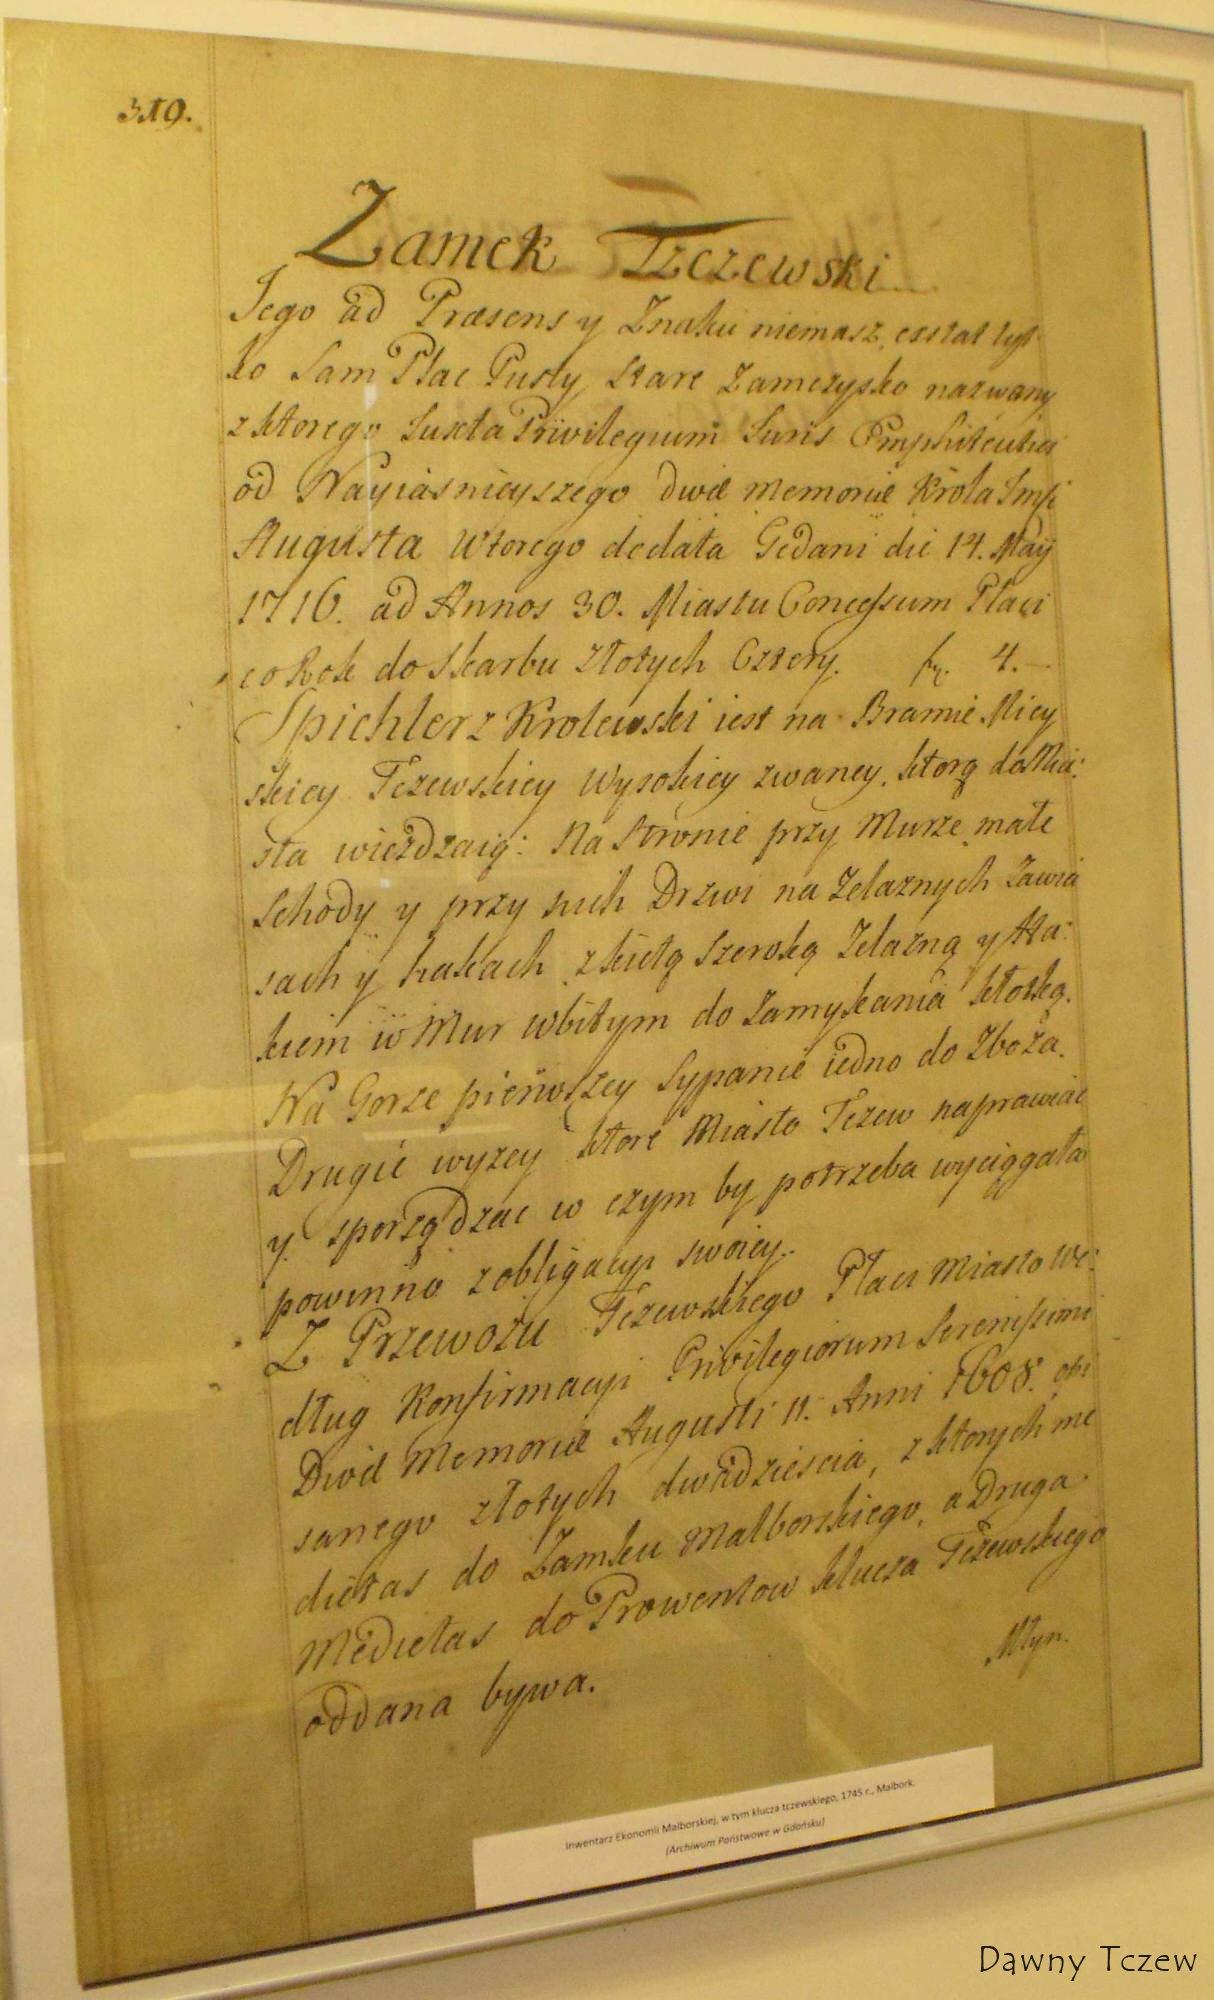 319.
Zamek Tczewski
Jego ad Præsens y Znaku niemasz, exstat tyl-
ko Sam Plac Pusty, Stare Zamczysko nazwany
z ktorego Juxta Privilegium Juris Emphiteutici
od Nayiasnieyszego Divæ Memoriæ Krola Jmsi
Augusta Wtorego de data Gedani die 14. Maÿ
1716. ad Annos 30. Miastu Concessum Płaci
co Rok do Skarbu Złotych Cztery. fr. 4.—
Spichlerz Krolewski iest na Bramie Miey
skiey Tczewskiey Wysokiey zwaney, ktorą do Mia:
sta wieżdzaią: Na Stronie przy Murze małe
Schody y przy nich Drzwi na Zelaznych Zawia
sach y hakach z kłotą Szeroką Zelazną y Ha:
kiem w Mur wbitym do Zamykania kłotką.
Na Gorze pierwszey Sypanie iedno do Zboża.
Drugie wyzey ktore Miasto Tczew naprawiac
y sporządzac w czym by potrzeba wyciągała
powinno z obligacyi swoiey.
Z Przewozu Tczewskiego Płaci Miasto we:
dług Konfirmacyi Privilegiorum Serenissimi
Divæ Memoriæ Augusti II. Anni 1608. opi
sanego złotych dwadziescia, z ktorych me
dietas do Zamku Malborskiego, a Druga
Medietas do Prowentow klucza Tczewskiego
oddana bywa.
Młyn.
Inwentarz Ekonomii Malborskiej, w tym klucza tczewskiego, 1745 r., Malbork.
(Archiwum Państwowe w Gdańsku)
Dawny Tczew